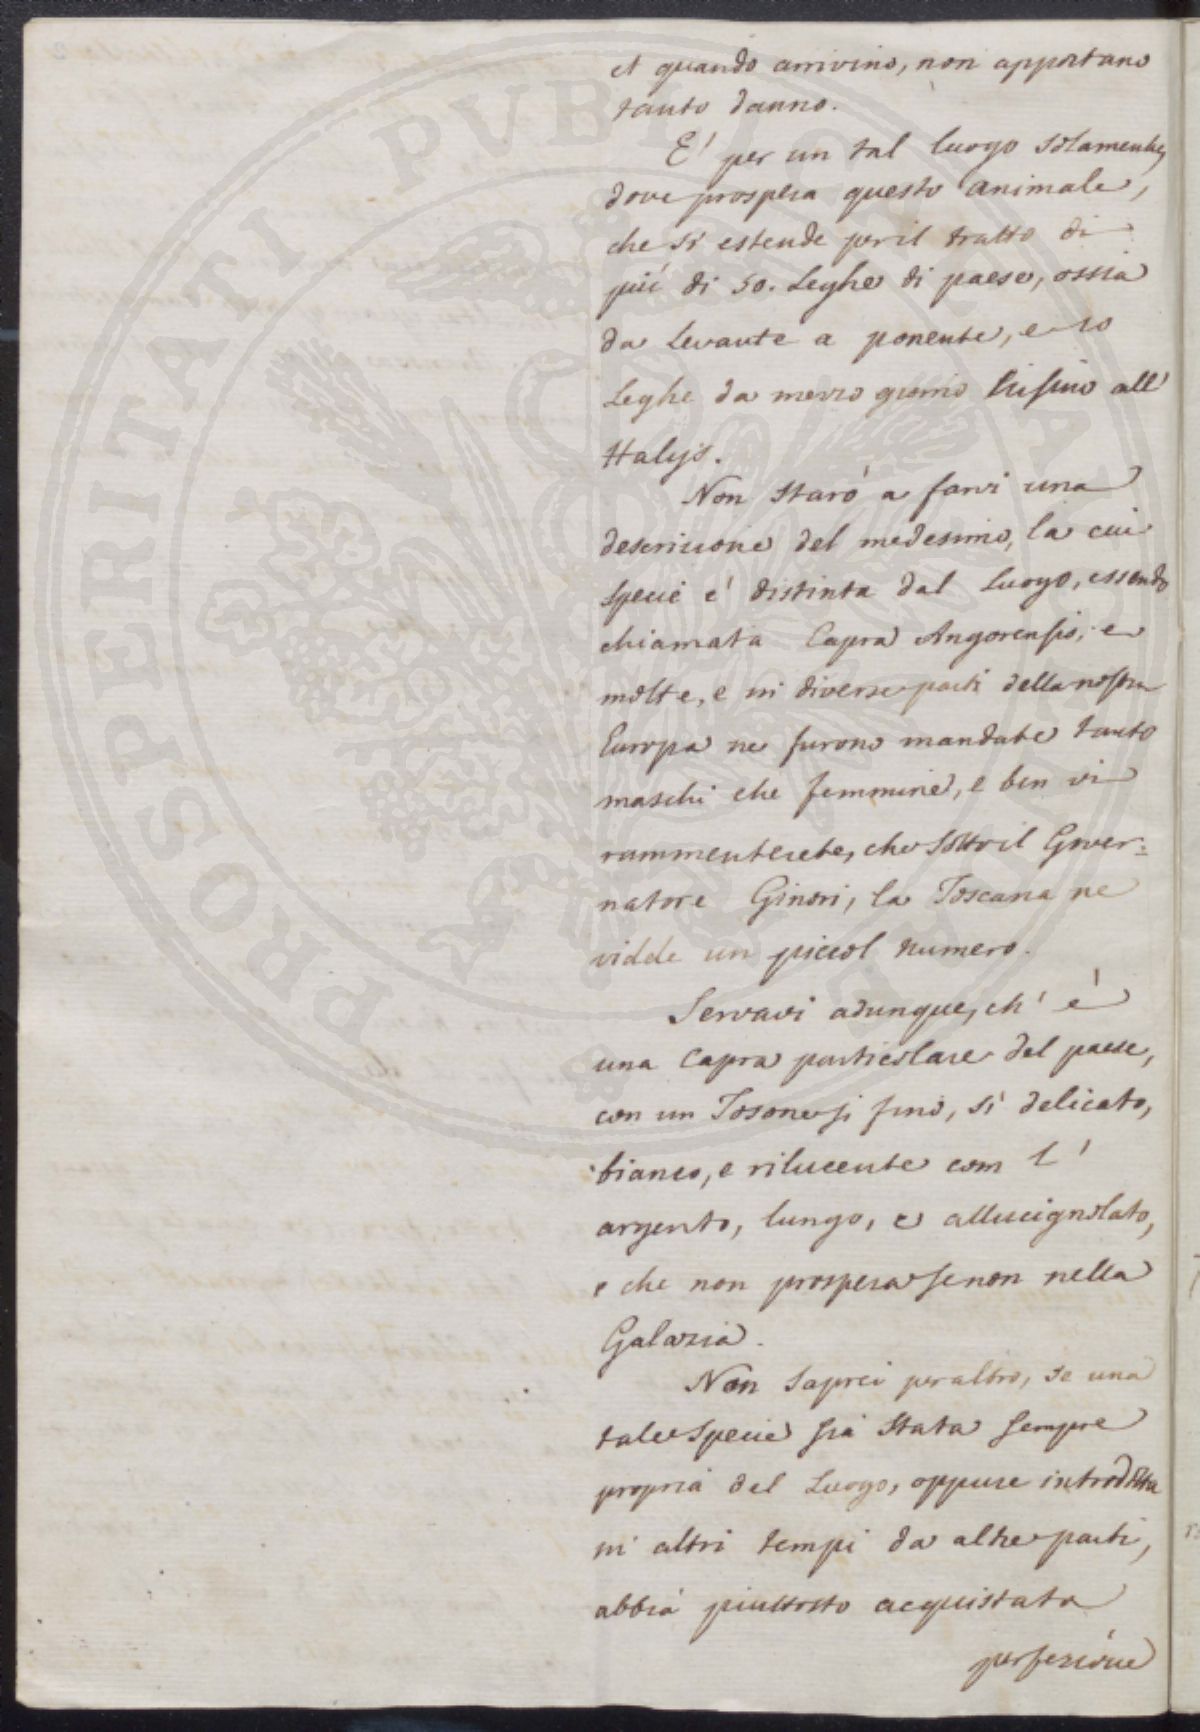 et quando arrivino, non apportano
tanto danno.
E' per un tal luogo solamente,
dove prospera questo animale,
che si estende per il tratto di
più di 50. Leghe di paese, ossia
da Levante a ponente, e 10
Leghe da mezzo giorno insino all'
Halys.
Non starò a farvi una
descrizione del medesimo, la cui
specie è distinta dal Luogo, essendo
chiamata Capra Angorensis; e
molte, e in diverse parti della nostra
Europa ne furono mandate tanto
maschi che femmine, e ben vi
rammenterete, che sotto il Gover:
natore Ginori, la Toscana ne
vidde un piccol numero.
Servavi adunque, ch' è
una Capra particolare del paese,
con un Tosone si fino, sì delicato,
bianco, e rilucente com l'
argento, lungo, e allucignolato,
e che non prospera se non nella
Galazia.
Non saprei per altro, se una
tale specie sia stata sempre
propria del Luogo, oppure introdotta
in altri tempi da altre parti,
abbia piuttosto acquistata
perfezione
PROSPERITATI PUBLICAE